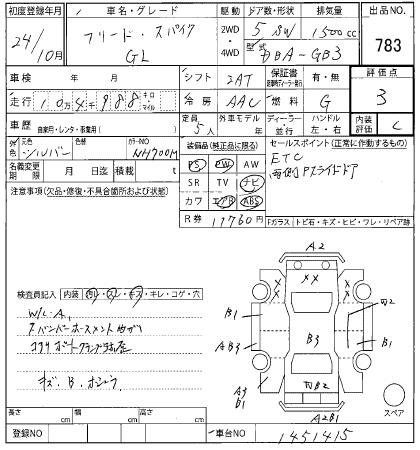 初度登録年月 車名・グレード 駆動 ドア数・形状 排気量 出品NO.
24/10月 フリード・スパイク GL 2WD・4WD 5 SW 1500cc 783
型式 DBA-GB3
車検 年 月 シフト 2AT 保証書 有・無 評価点 3
走行 10万4988 キロ マイル 冷房 AAC 燃料 G
車歴 自家用・レンタ・事業用( ) 定員 5人 外車モデル 年 ディーラー 並行 ハンドル 左・右 内装評価 C
外色 元色 シルバー 色替 カラーNO NH700M
名義変更期限 月 日迄 積載 t
装備品(純正品に限る) セールスポイント(正常に作動するもの)
PS PW AW ETC
SR TV ナビ 両側Pスライドドア
カワ エアB ABS
R券 17760円 Fガラス トビ石・キズ・ヒビ・ワレ・リペア跡
注意事項(欠品・修復・不具合箇所および状態)
検査員記入 内装 汚レ・スレ・キズ・キレ・コゲ・穴
W/L.A.
キズ.B.
A2
XX XX
B1
B3
A B3
B1
A3
B1
B2
A2B1
スペア
長さ cm 幅 cm 高さ cm
登録NO 車台NO 1451415